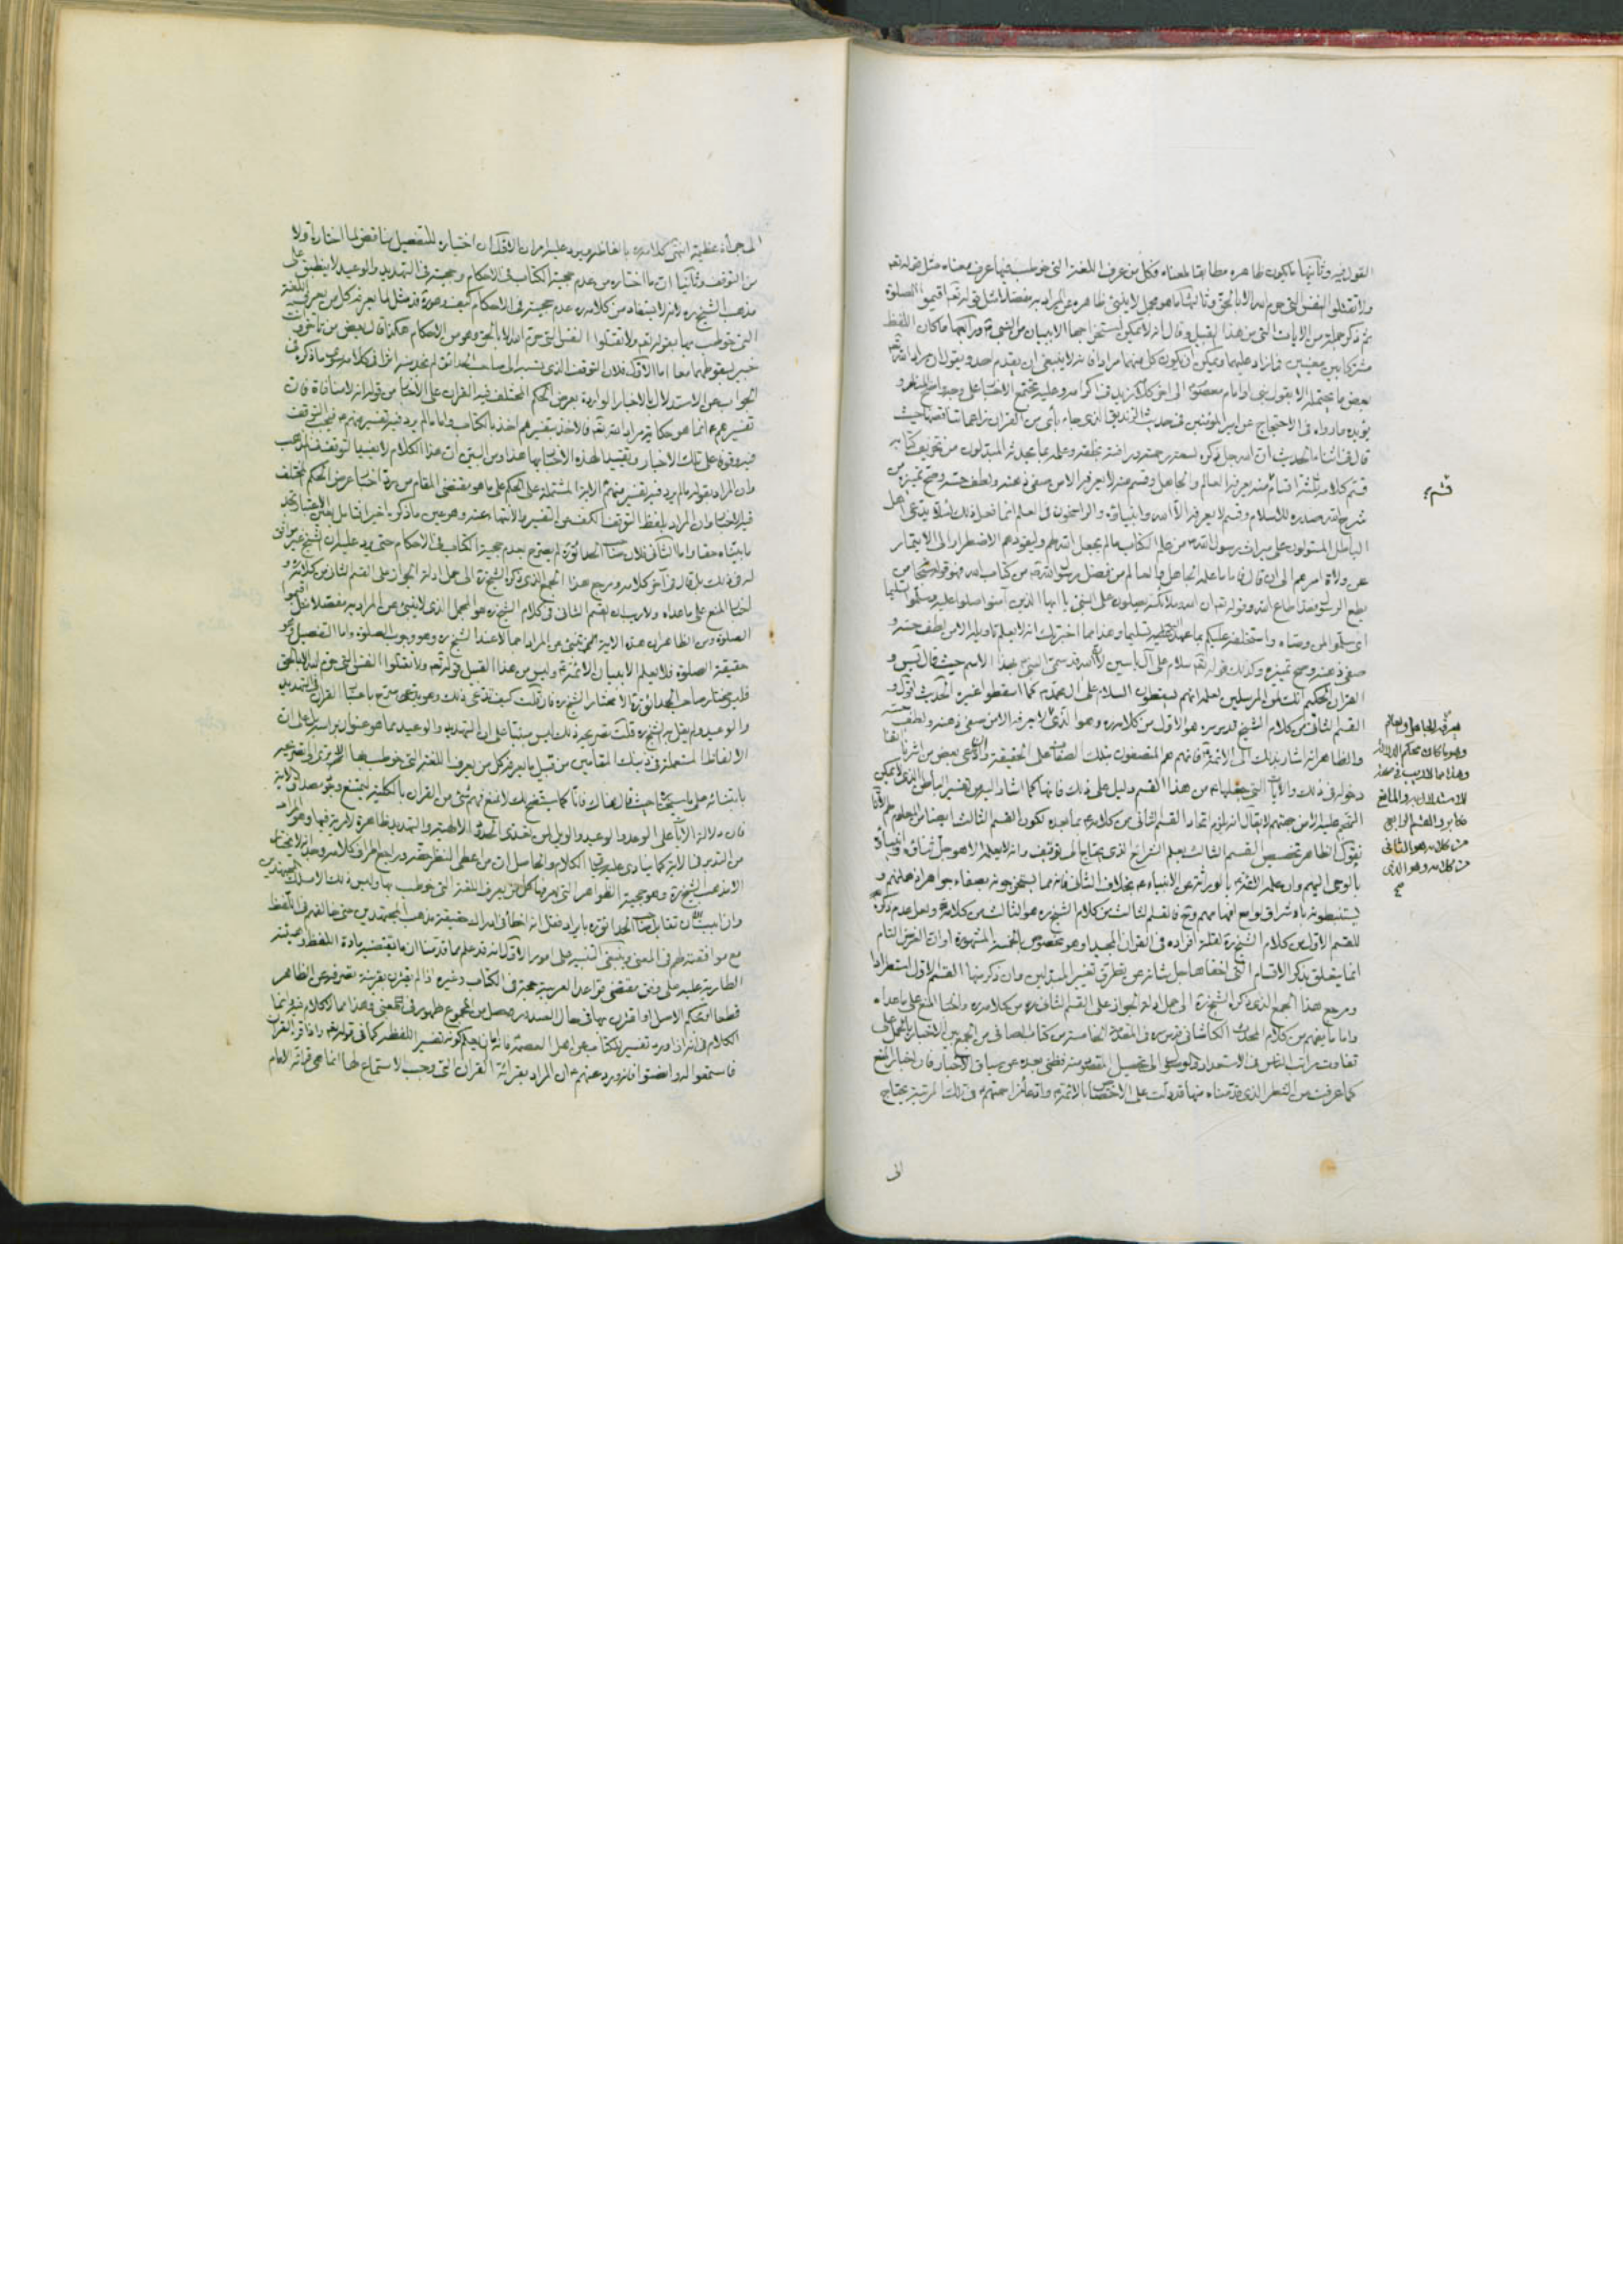 القول فيه وثانيها ما يكون ظاهره مطابقا لمعناه فكل من عرف اللغة التي خوطب بها عرف معناه مثل قوله تعه
ولا تقتلوا النفس التي حرم الله الا بالحق وثالثها ما هو مجمل لا ينبئ ظاهره عن المراد به مفصلا مثل قوله تعه اقيموا الصلوة
ثم ذكر جملة من الايات التي من هذا القبيل وقال انه لا يمكن استخراجها الا ببيان من النبي ورابعها ما كان اللفظ
مشتركا بين معنيين فما زاد عليهما ويمكن ان يكون كل منهما مرادا فانه لا ينبغي ان يقدم احد ويقول ان مراد الله
بعض ما يحتمله الا بقول نبي او امام معصوم الى اخر كلامه وعليه تجتمع الاخبار على وجه واضح
يؤيده ما رواه في الاحتجاج عن امير المؤمنين في حديث الزنديق الذي جاء بآي من القران زاعما تناقضها حيث
قال في اثناء الحديث ان الله جل ذكره لسعة رحمته ورافته بخلقه وعلمه بما يحدثه المبدلون من تحريف كتابه
قسم كلامه ثلثة اقسام فجعل قسما منه يعرفه العالم والجاهل وقسم منه لا يعرفه الا من صفى ذهنه ولطف حسه وصح تميزه ممن
شرح الله صدره للاسلام وقسم لا يعرفه الا الله وانبياؤه والراسخون في العلم انما فعل ذلك لئلا يدعي اهل
الباطل المستولون على ميراث رسول الله من علم الكتاب ما لم يجعل الله لهم وليقودهم الاضطرار الى الايتمار
عن ولاة امرهم الى ان قال فاما ما علمه الجاهل والعالم من فضل رسول الله من كتاب الله فهو قوله سبحانه من
يطع الرسول فقد اطاع الله وقوله تعه ان الله وملائكته يصلون على النبي يا ايها الذين آمنوا صلوا عليه وسلموا تسليما
اي سلموا لمن وصاه واستخلفه عليكم بما عهد اليه تسليما وهذا مما اخبرتك انه لا يعلم تاويله الا من لطف حسه و
صفى ذهنه وصح تميزه وكذلك قوله تعه سلام على آل ياسين لان الله قد سمى النبي بهذا الاسم حيث قال يس و
القران الحكيم انك لمن المرسلين لعلمه انهم يسقطون السلام على آل محمد كما اسقطوا غيره الحديث اقول و
القسم الثاني من كلام الشيخ قدس سره هو الاول من كلامه وهو الذي لا يعرفه الا من صفى ذهنه ولطف حسه
والظاهر انه اشار بذلك الى الائمة فانهم هم المتصفون بتلك الصفات على الحقيقة وان ادعى بعض من اشرنا
دخوله في ذلك والآيات التي جعلها من هذا القسم دليل على ذلك فانها كما اشار اليه من تفسير الباطن الذي لا يمكن
التهجم عليه الا من جهتهم لا يقال انه يلزم اتحاد القسم الثاني من كلامه بما بعده لكون القسم الثالث ايضا من
نقول الظاهر تخصيص القسم الثالث بعلم الشرائع الذي يحتاج الى توقيف وانه لا يعلمه الا هو جل شأنه وانبياؤه
بالوحي اليهم وان علمه الائمة بالوراثة عن الانبياء بخلاف الثاني فانه مما يستخرجونه بصفاء جواهر اذهانهم و
يستنبطونه باشراق لوامع افهامهم فالقسم الثالث من كلام الشيخ ره هو الثالث من كلامه ولعل عدم ذكره
للقسم الاول من كلام الشيخ ره لقلة افراده في القران المجيد وهو مخصوص بالخمسة المشهورة او ان الغرض التام
انما يتعلق بذكر الاقسام التي اخفاها جل شأنه عن تطرق تغيير المبدلين وان ذكر منها القسم الاول استطرادا
ومرجع هذا الجمع الذي ذكره الشيخ ره الى حمل ادلة الجواز على القسم الثاني من كلامه واخبار المنع على ما عداه
واما ما يفهم من كلام المحدث الكاشاني قدس سره في المقدمة الخامسة من كتاب الصافي من الجمع بين الاخبار بالحمل على
تفاوت مراتب الناس في الاستعداد والوصول الى تحصيل المقصود منه فظني بعده عن سياق الاخبار فان اخبار المنع
كما عرفت من الشطر الذي قدمناه منها قد دلت على الاختصاص بالائمة وادعاء مزاحمتهم في تلك المرتبة يحتاج
الى
قسم
يعرفه الجاهل والعالم
وهو ما كان محكم الدلالة
وهذا مما لا ريب في صحة
الاستدلال به والمانع
مكابر والقسم الرابع
من كلامه هو الثاني
من كلامه وهو الذي
الى جرأة عظيمة انتهى كلامه بالفاظه ويرد عليه امران الاول ان اختياره للتفصيل يناقض لما اختاره اولا
من التوقف وثانيا ان ما اختاره من عدم حجية الكتاب في الاحكام وحجيته في التهديد والوعيد لا ينطبق على
مذهب الشيخ ره لانه لا يستفاد من كلامه عدم حجيته في الاحكام كيف وهو ره قد مثل لما يعرفه كل من يعرف اللغة
التي خوطب بها بقوله تعه ولا تقتلوا النفس التي حرم الله الا بالحق وهو من الاحكام هكذا قال بعض من تاخر وانت
خبير بسقوطهما معا اما الاول فلان التوقف الذي نسبه الى صاحب الحدائق لم نجد منه اثرا في كلامه سوى ما ذكره في
الجواب عن الاستدلال بالاخبار الواردة بعرض الحكم المختلف فيه القران على الاخبار من قوله انه لا منافاة فان
تفسيرهم انما هو حكاية مراد الله تعه فالاخذ بتفسيرهم اخذ بالكتاب واما ما لم يرد فيه تفسير منهم فيجب التوقف
فيه وقوفا على تلك الاخبار وتقييدا لهذه الاخبار بها هذا ومن البين ان هذا الكلام لا يفيد التوقف في المذهب
وان المراد بقوله ما لم يرد فيه تفسير منهم الآية المشتملة على الحكم على ما هو مقتضى المقام من ردة اخبار عرض الحكم المختلف
فيه للاخبار وان المراد بلفظ التوقف الكف عن التفسير والانتهاء عنه وهو عين ما ذكره اخيرا
ما بيناه حقا واما الثاني فلان صاحب الحدائق ره لم يصرح بعدم حجية الكتاب في الاحكام حتى يرد عليه ان الشيخ غير موافق
له في ذلك بل قال في آخر كلامه ومرجع هذا الجمع الذي ذكره الشيخ ره الى حمل ادلة الجواز على القسم الثاني من كلامه و
اخبار المنع على ما عداه ولا ريب ان القسم الثاني في كلام الشيخ ره هو المجمل الذي لا ينبئ عن المراد به مفصلا مثل اقيموا
الصلوة ومن الظاهر ان هذه الآية مما ينبئ عن المراد اجمالا عند الشيخ ره وهو وجوب الصلوة واما التفصيل وهو
حقيقة الصلوة فلا يعلم الا ببيان الائمة وليس من هذا القبيل قوله تعه ولا تقتلوا النفس التي حرم الله الا بالحق
فليس مختار صاحب الحدائق ره الا مختار الشيخ ره فان قلت كيف تدعي ذلك وهو يدعي صرح باختيار القران في التهديد
والوعيد ولم يقل به الشيخ ره قلت تصريحه بذلك ليس مبنيا على ان التهديد والوعيد مما هو عنوان براسه بل على ان
الالفاظ المستعملة في ذينك المقامين من قبيل ما يعرفه كل من يعرف اللغة التي خوطب بها
فان دلالة الآيات على الوعد والوعيد والويل لمن تعدى الحدود الالهية والتهديد ظاهرة لا مرية فيها وهو المراد
من التدبر في الآية كما ينادي عليه سياق الكلام والحاصل ان من اعطى النظر حقه وراجع اطراف كلامه وجد انه لا يختار
الا مذهب الشيخ ره وهو حجية الظواهر التي يعرفها كل من يعرف اللغة التي خوطب بها وليس ذلك الا مسلك المجتهدين
وان ابيت ان تقابل صاحب الحدائق ره بايراد فقل انه اخطأ في ادراك حقيقة مذهب المجتهدين حتى خالفهم في اللفظ
مع موافقته لهم في المعنى وينبغي التنبيه على امور الاول انه قد علم مما قدمنا ان ما يقتضيه مادة اللفظ وهيئته
الطارية عليه على وفق مقتضى قواعد العربية حجة في الكتاب وغيره اذا لم يقترن بقرينة تصرفه عن الظاهر
قطعا او بحكم الاصل او اقترن بها في حال الصدور وحصل من المجموع ظهور في المعنى وهذا مما لا كلام فيه وانما
الكلام في انه اذا ورد تفسير للكتاب عن اهل العصمة فانه اما ان يعلم كونه تفسير اللفظ كما في قوله تعه واذا قرئ القران
فاستمعوا له وانصتوا فانه ورد عنهم ان المراد بقرائة القران التي وجب الاستماع لها انما هي قرائة الامام